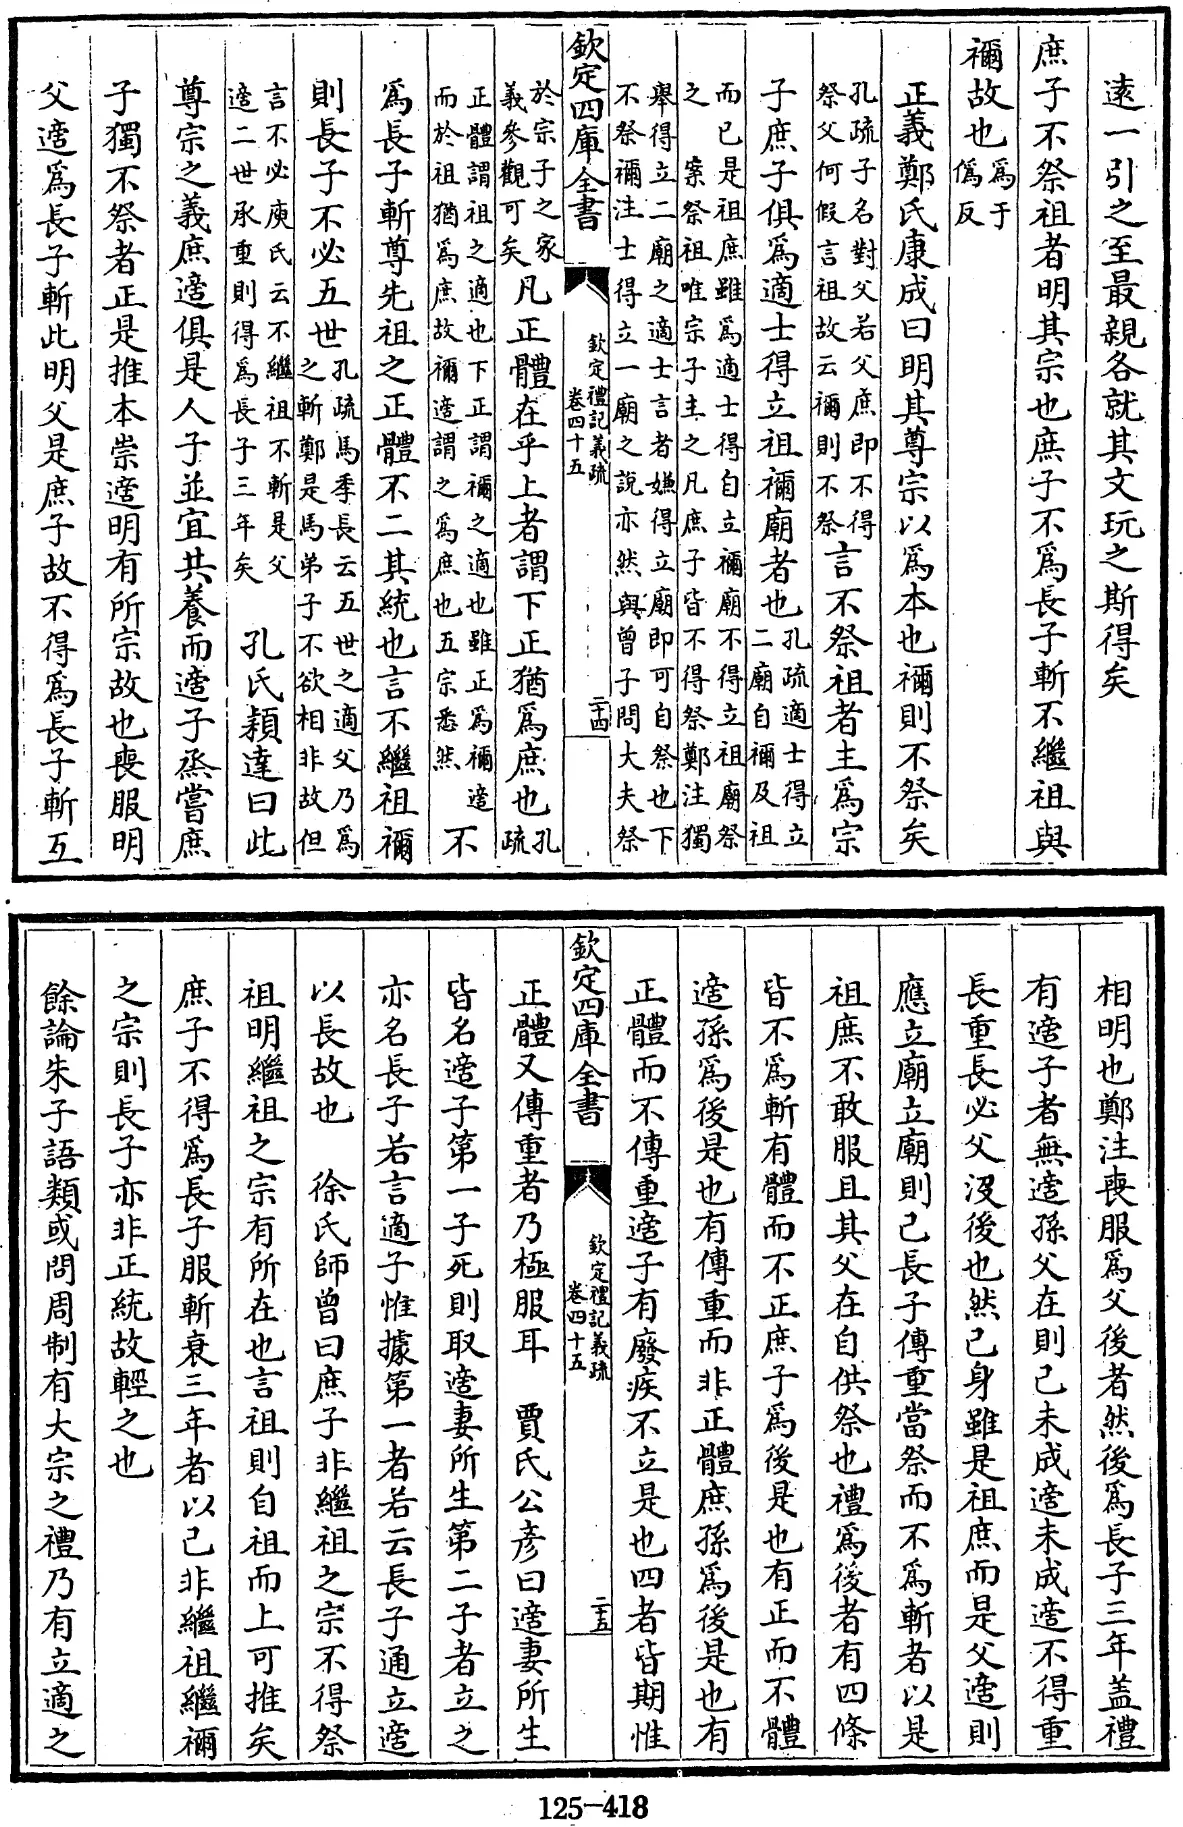 遠一引之至最親各就其文玩之斯得矣
庶子不祭祖者明其宗也庶子不爲長子斬不繼祖與
禰故也爲于
僞反
正義鄭氏康成曰明其尊宗以爲本也禰則不祭矣
孔疏子名對父若父庶即不得
祭父何假言祖故云禰則不祭言不祭祖者主爲宗
子庶子俱爲適士得立祖禰廟者也孔疏適士得立
二廟自禰及祖
而已是祖庶雖爲適士得自立禰廟不得立祖廟祭
之 案祭祖唯宗子主之凡庶子皆不得祭鄭注獨
舉得立二廟之適士言者嫌得立廟即可自祭也下
不祭禰注士得立一廟之說亦然與曾子問大夫祭
欽定四庫全書
欽定禮記義疏
卷四十五
二十四
於宗子之家
義參觀可矣凡正體在乎上者謂下正猶爲庶也孔
疏
正體謂祖之適也下正謂禰之適也雖正爲禰適
而於祖猶爲庶故禰適謂之爲庶也五宗悉然 不
爲長子斬尊先祖之正體不二其統也言不繼祖禰
則長子不必五世孔疏馬季長云五世之適父乃爲
之斬鄭是馬弟子不欲相非故但
言不必庾氏云不繼祖不斬是父
適二世承重則得爲長子三年矣 孔氏穎達曰此
尊宗之義庶適俱是人子並宜共養而適子烝嘗庶
子獨不祭者正是推本崇適明有所宗故也喪服明
父適爲長子斬此明父是庶子故不得爲長子斬互
相明也鄭注喪服爲父後者然後爲長子三年蓋禮
有適子者無適孫父在則己未成適未成適不得重
長重長必父沒後也然己身雖是祖庶而是父適則
應立廟立廟則己長子傳重當祭而不爲斬者以是
祖庶不敢服且其父在自供祭也禮爲後者有四條
皆不爲斬有體而不正庶子爲後是也有正而不體
適孫爲後是也有傳重而非正體庶孫爲後是也有
正體而不傳重適子有廢疾不立是也四者皆期惟
欽定四庫全書
欽定禮記義疏
卷四十五
二十五
正體又傳重者乃極服耳 賈氏公彥曰適妻所生
皆名適子第一子死則取適妻所生第二子者立之
亦名長子若言適子惟據第一者若云長子通立適
以長故也 徐氏師曾曰庶子非繼祖之宗不得祭
祖明繼祖之宗有所在也言祖則自祖而上可推矣
庶子不得爲長子服斬衰三年者以己非繼祖繼禰
之宗則長子亦非正統故輕之也
餘論朱子語類或問周制有大宗之禮乃有立適之
125-418